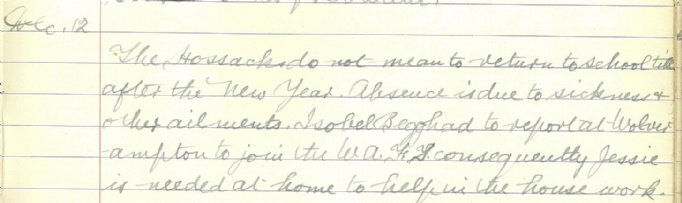 Dec. 12
The Hossacks do not mean to return to school till
after the New Year. Absence is due to sickness &
other ailments. Isobel Begg had to report at Wolver
-ampton to join the W.A.F.S. consequently Jessie
is needed at home to help in the house work.